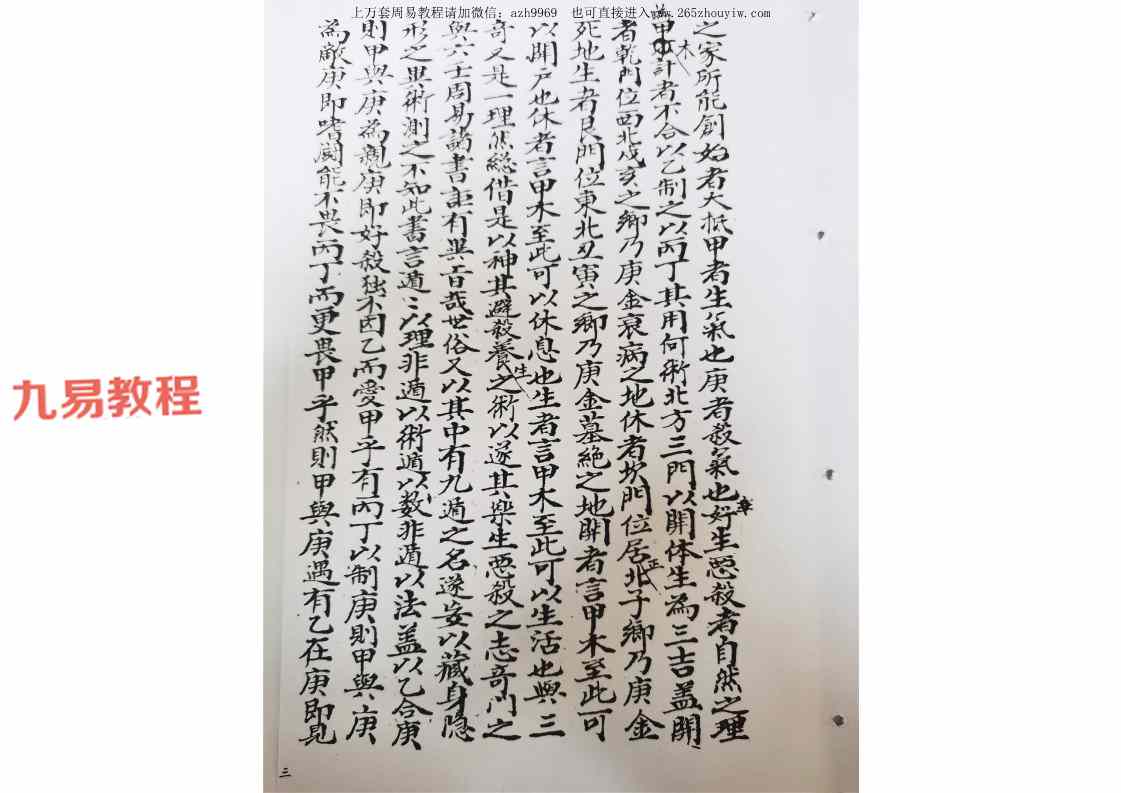 上万套周易教程请加微信：azh9969　也可直接进入www.265zhouyiw.com
九易教程
之家所能創始者大抵甲者生氣也庚者殺氣也好生惡殺者自然之理
為甲木計者不合以乙制之以丙丁其用何術北方三門以開休生為三吉蓋開
者乾門位西北戌亥之鄉乃庚金衰病之地休者坎門位居正北子鄉乃庚金
死地生者艮門位東北丑寅之鄉乃庚金墓絶之地開者言甲木至此可
以開户也休者言甲木至此可以休息也生者言甲木至此可以生活也與三
奇又是一理然總借是以神其避殺養生之術以遂其樂生惡殺之志奇门之
與六壬周易諸書詎有異旨哉世俗又以其中有九遁之名遂妄以藏身隐
形之異術測之不知此書言遁:以理非遁以術遁以数非遁以法蓋以乙合庚
則甲與庚為親庚即好殺独不因乙而愛甲乎有丙丁以制庚則甲與庚
為敵庚即嗜鬭能不畏丙丁而更畏甲乎然則甲與庚遇有乙在庚即見
三